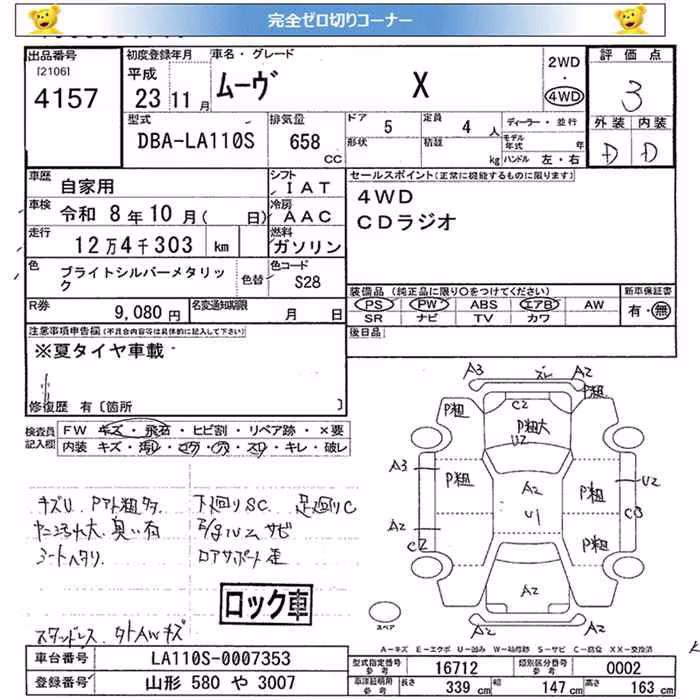 完全ゼロ切りコーナー
出品番号
[2106]
4157
初度登録年月
平成
23 11 月
車名・グレード
ムーヴ X
2WD
・
4WD
評価点
3
外装 内装
D D
型式
DBA-LA110S
排気量
658
CC
ドア 5
形状
定員 4 人
積載 kg
ディーラー・並行
モデル年式 年
ハンドル 左・右
車歴
自家用
シフト
IAT
車検
令和 8年 10月( 日)
冷房
AAC
走行
12万4千303 km
燃料
ガソリン
色
ブライトシルバーメタリック
色替
色コード
S28
R券
9,080円
名変通知期限
月 日
セールスポイント(正常に機能するものに限ります)
4WD
CDラジオ
装備品(純正品に限り〇をつけてください)
PS PW ABS エアB AW
SR ナビ TV カワ
新車保証書
有・無
後日品
注意事項申告欄(不具合内容等は具体的に記入して下さい)
※夏タイヤ車載
修復歴 有〔箇所 〕
検査員記入欄
FW キズ・飛石・ヒビ割・リペア跡・×要
内装 キズ・汚レ・コゲ・穴・スレ・キレ・破レ
キズU Pアト粗多 下廻りSC 足廻りC
シートヘタリ
ロック車
A3
ズレ
A2
P粗
P粗
C2
P粗大
U2
A3
P粗
A2
P粗
U2
A2
C2
U1
C3
P粗
A2
A2
A2
スペア
A−キズ E−エクボ U−凹み W−補修跡 S−サビ C−腐食 XX−交換済
車台番号
LA110S-0007353
登録番号
山形 580 や 3007
型式指定番号
参考
16712
類別区分番号
参考
0002
車体証明用
参考
長さ
339 cm
幅
147 cm
高さ
163 cm